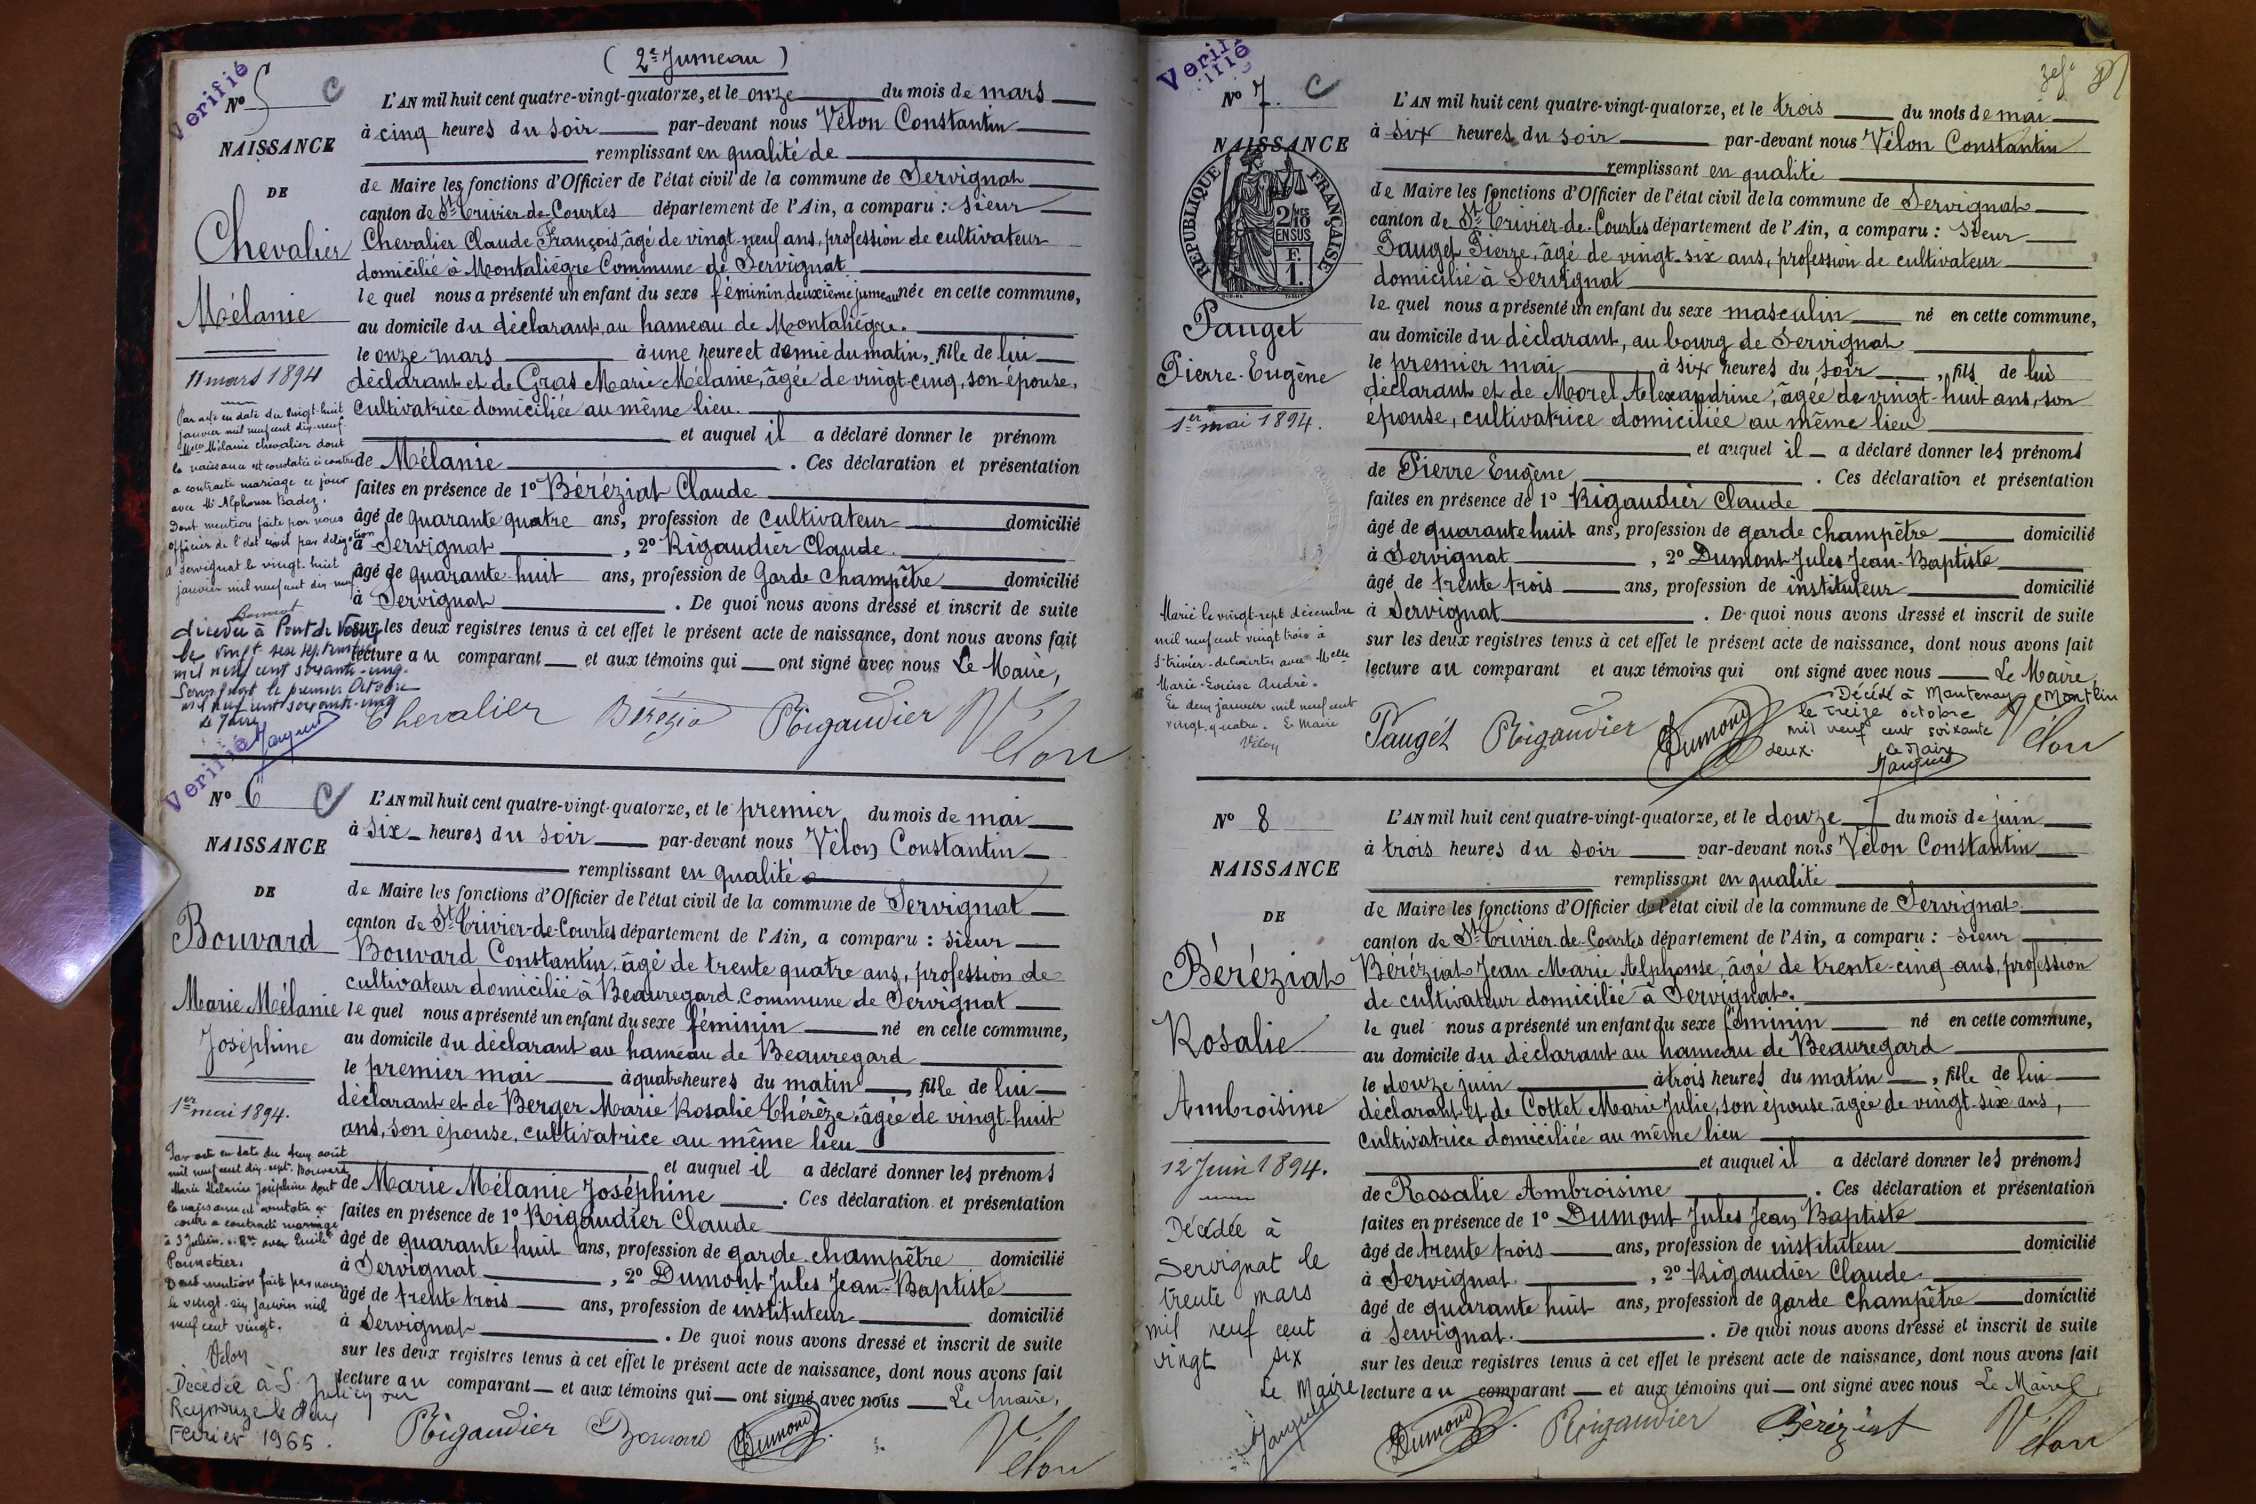 ( 2e Jumeau )
Verifié
No 5 C
NAISSANCE
DE
Chevalier
Mélanie
11 mars 1894
Par acte en date du vingt-huit
janvier mil neuf cent dix-neuf
Mélanie Chevalier dont
la naissance est constatée ci contre
a contracté mariage ce jour
avec Mr Alphonse Badez.
Dont mention faite par nous
officier de l'état civil par délégation
à Servignat le vingt-huit
janvier mil neuf cent dix neuf
décédée à Pont de Vaux
le vingt septembre
mil neuf cent soixante-cinq.
Servignat le premier Octobre
mil neuf cent soixante-cinq
le Maire
L'AN mil huit cent quatre-vingt-quatorze, et le onze du mois de mars
à cinq heures du soir par-devant nous Vélon Constantin
remplissant en qualité de
de Maire les fonctions d'Officier de l'état civil de la commune de Servignat
canton de St-Trivier-de-Courtes département de l'Ain, a comparu : sieur
Chevalier Claude François, âgé de vingt-neuf ans, profession de cultivateur
domicilié à Montaliègre Commune de Servignat
le quel nous a présenté un enfant du sexe féminin, deuxième jumeau née en cette commune,
au domicile du déclarant, au hameau de Montaliègre.
le onze mars à une heure et demie du matin, fille de lui
déclarant et de Gras Marie Mélanie, âgée de vingt-cinq, son épouse,
cultivatrice domiciliée au même lieu.
et auquel il a déclaré donner le prénom
de Mélanie . Ces déclaration et présentation
faites en présence de 1o Béréziat Claude
âgé de quarante quatre ans, profession de cultivateur domicilié
à Servignat , 2o Rigaudier Claude
âgé de quarante-huit ans, profession de Garde champêtre domicilié
à Servignat . De quoi nous avons dressé et inscrit de suite
sur les deux registres tenus à cet effet le présent acte de naissance, dont nous avons fait
lecture au comparant et aux témoins qui ont signé avec nous Le Maire,
Chevalier Bérézia Rigaudier Vélon
Verifié
No 6 C
NAISSANCE
DE
Bouvard
Marie Mélanie
Joséphine
1er mai 1894.
Par acte en date du deux août
mil neuf cent dix-sept. Bouvard
Marie Mélanie Joséphine dont
la naissance est constatée ci
contre a contracté mariage
à St Julien s. Rze avec Emile
Dont mention faite par nous
le vingt-six janvier mil
neuf cent vingt.
Vélon
Décédée à St Julien sur
Reyssouze le deux
Février 1965.
L'AN mil huit cent quatre-vingt-quatorze, et le premier du mois de mai
à six heures du soir par-devant nous Vélon Constantin
remplissant en qualité
de Maire les fonctions d'Officier de l'état civil de la commune de Servignat
canton de St-Trivier-de-Courtes département de l'Ain, a comparu : sieur
Bouvard Constantin, âgé de trente quatre ans, profession de
cultivateur domicilié à Beauregard, Commune de Servignat
le quel nous a présenté un enfant du sexe féminin né en cette commune,
au domicile du déclarant au hameau de Beauregard
le premier mai à quatre heures du matin, fille de lui
déclarant et de Berger Marie Rosalie Thérèze, âgée de vingt-huit
ans, son épouse, cultivatrice au même lieu
et auquel il a déclaré donner les prénoms
de Marie Mélanie Joséphine . Ces déclaration et présentation
faites en présence de 1o Rigaudier Claude
âgé de quarante huit ans, profession de garde champêtre domicilié
à Servignat , 2o Dumont Jules Jean-Baptiste
âgé de trente trois ans, profession de instituteur domicilié
à Servignat . De quoi nous avons dressé et inscrit de suite
sur les deux registres tenus à cet effet le présent acte de naissance, dont nous avons fait
lecture au comparant et aux témoins qui ont signé avec nous Le Maire,
Rigaudier Bouvard Dumont Vélon
Verifié
No 7. C
NAISSANCE
RÉPUBLIQUE FRANÇAISE
2/10 MES
EN SUS
F.
1.
Pauget
Pierre-Eugène
1er mai 1894.
Marié le vingt-sept décembre
mil neuf cent vingt trois à
St-trivier-de-Courtes avec Melle
Marie-Louise André.
Le deux janvier mil neuf cent
vingt-quatre. Le Maire
Vélon
L'AN mil huit cent quatre-vingt-quatorze, et le trois du mois de mai
à six heures du soir par-devant nous Vélon Constantin
remplissant en qualité
de Maire les fonctions d'Officier de l'état civil de la commune de Servignat
canton de St-Trivier-de-Courtes département de l'Ain, a comparu : sieur
Pauget Pierre, âgé de vingt-six ans, profession de cultivateur
domicilié à Servignat
le quel nous a présenté un enfant du sexe masculin né en cette commune,
au domicile du déclarant, au bourg de Servignat
le premier mai à six heures du soir, fils de lui
déclarant et de Morel Alexandrine, âgée de vingt-huit ans, son
épouse, cultivatrice domiciliée au même lieu
et auquel il a déclaré donner les prénoms
de Pierre Eugène . Ces déclaration et présentation
faites en présence de 1o Rigaudier Claude
âgé de quarante huit ans, profession de garde champêtre domicilié
à Servignat , 2o Dumont Jules Jean-Baptiste
âgé de trente trois ans, profession de instituteur domicilié
à Servignat . De quoi nous avons dressé et inscrit de suite
sur les deux registres tenus à cet effet le présent acte de naissance, dont nous avons fait
lecture au comparant et aux témoins qui ont signé avec nous Le Maire,
Décédé à Mantenay Montlin
le treize octobre
mil neuf cent soixante
deux.
Le Maire
Pauget Rigaudier Dumont Vélon
No 8
NAISSANCE
DE
Béréziat
Rosalie
Ambroisine
12 Juin 1894.
Décédée à
Servignat le
trente mars
mil neuf cent
vingt six
Le Maire
L'AN mil huit cent quatre-vingt-quatorze, et le douze du mois de juin
à trois heures du soir par-devant nous Vélon Constantin
remplissant en qualité
de Maire les fonctions d'Officier de l'état civil de la commune de Servignat
canton de St-Trivier-de-Courtes département de l'Ain, a comparu : sieur
Béréziat Jean Marie Alphonse, âgé de trente-cinq ans, profession
de cultivateur domicilié à Servignat.
le quel nous a présenté un enfant du sexe féminin né en cette commune,
au domicile du déclarant au hameau de Beauregard
le douze juin à trois heures du matin, fille de lui
déclarant et de Cottet Marie Julie, son épouse, âgée de vingt-six ans,
cultivatrice domiciliée au même lieu
et auquel il a déclaré donner les prénoms
de Rosalie Ambroisine . Ces déclaration et présentation
faites en présence de 1o Dumont Jules Jean Baptiste
âgé de trente trois ans, profession de instituteur domicilié
à Servignat , 2o Rigaudier Claude
âgé de quarante huit ans, profession de garde champêtre domicilié
à Servignat. . De quoi nous avons dressé et inscrit de suite
sur les deux registres tenus à cet effet le présent acte de naissance, dont nous avons fait
lecture au comparant et aux témoins qui ont signé avec nous Le Maire
Dumont Rigaudier Béréziat Vélon